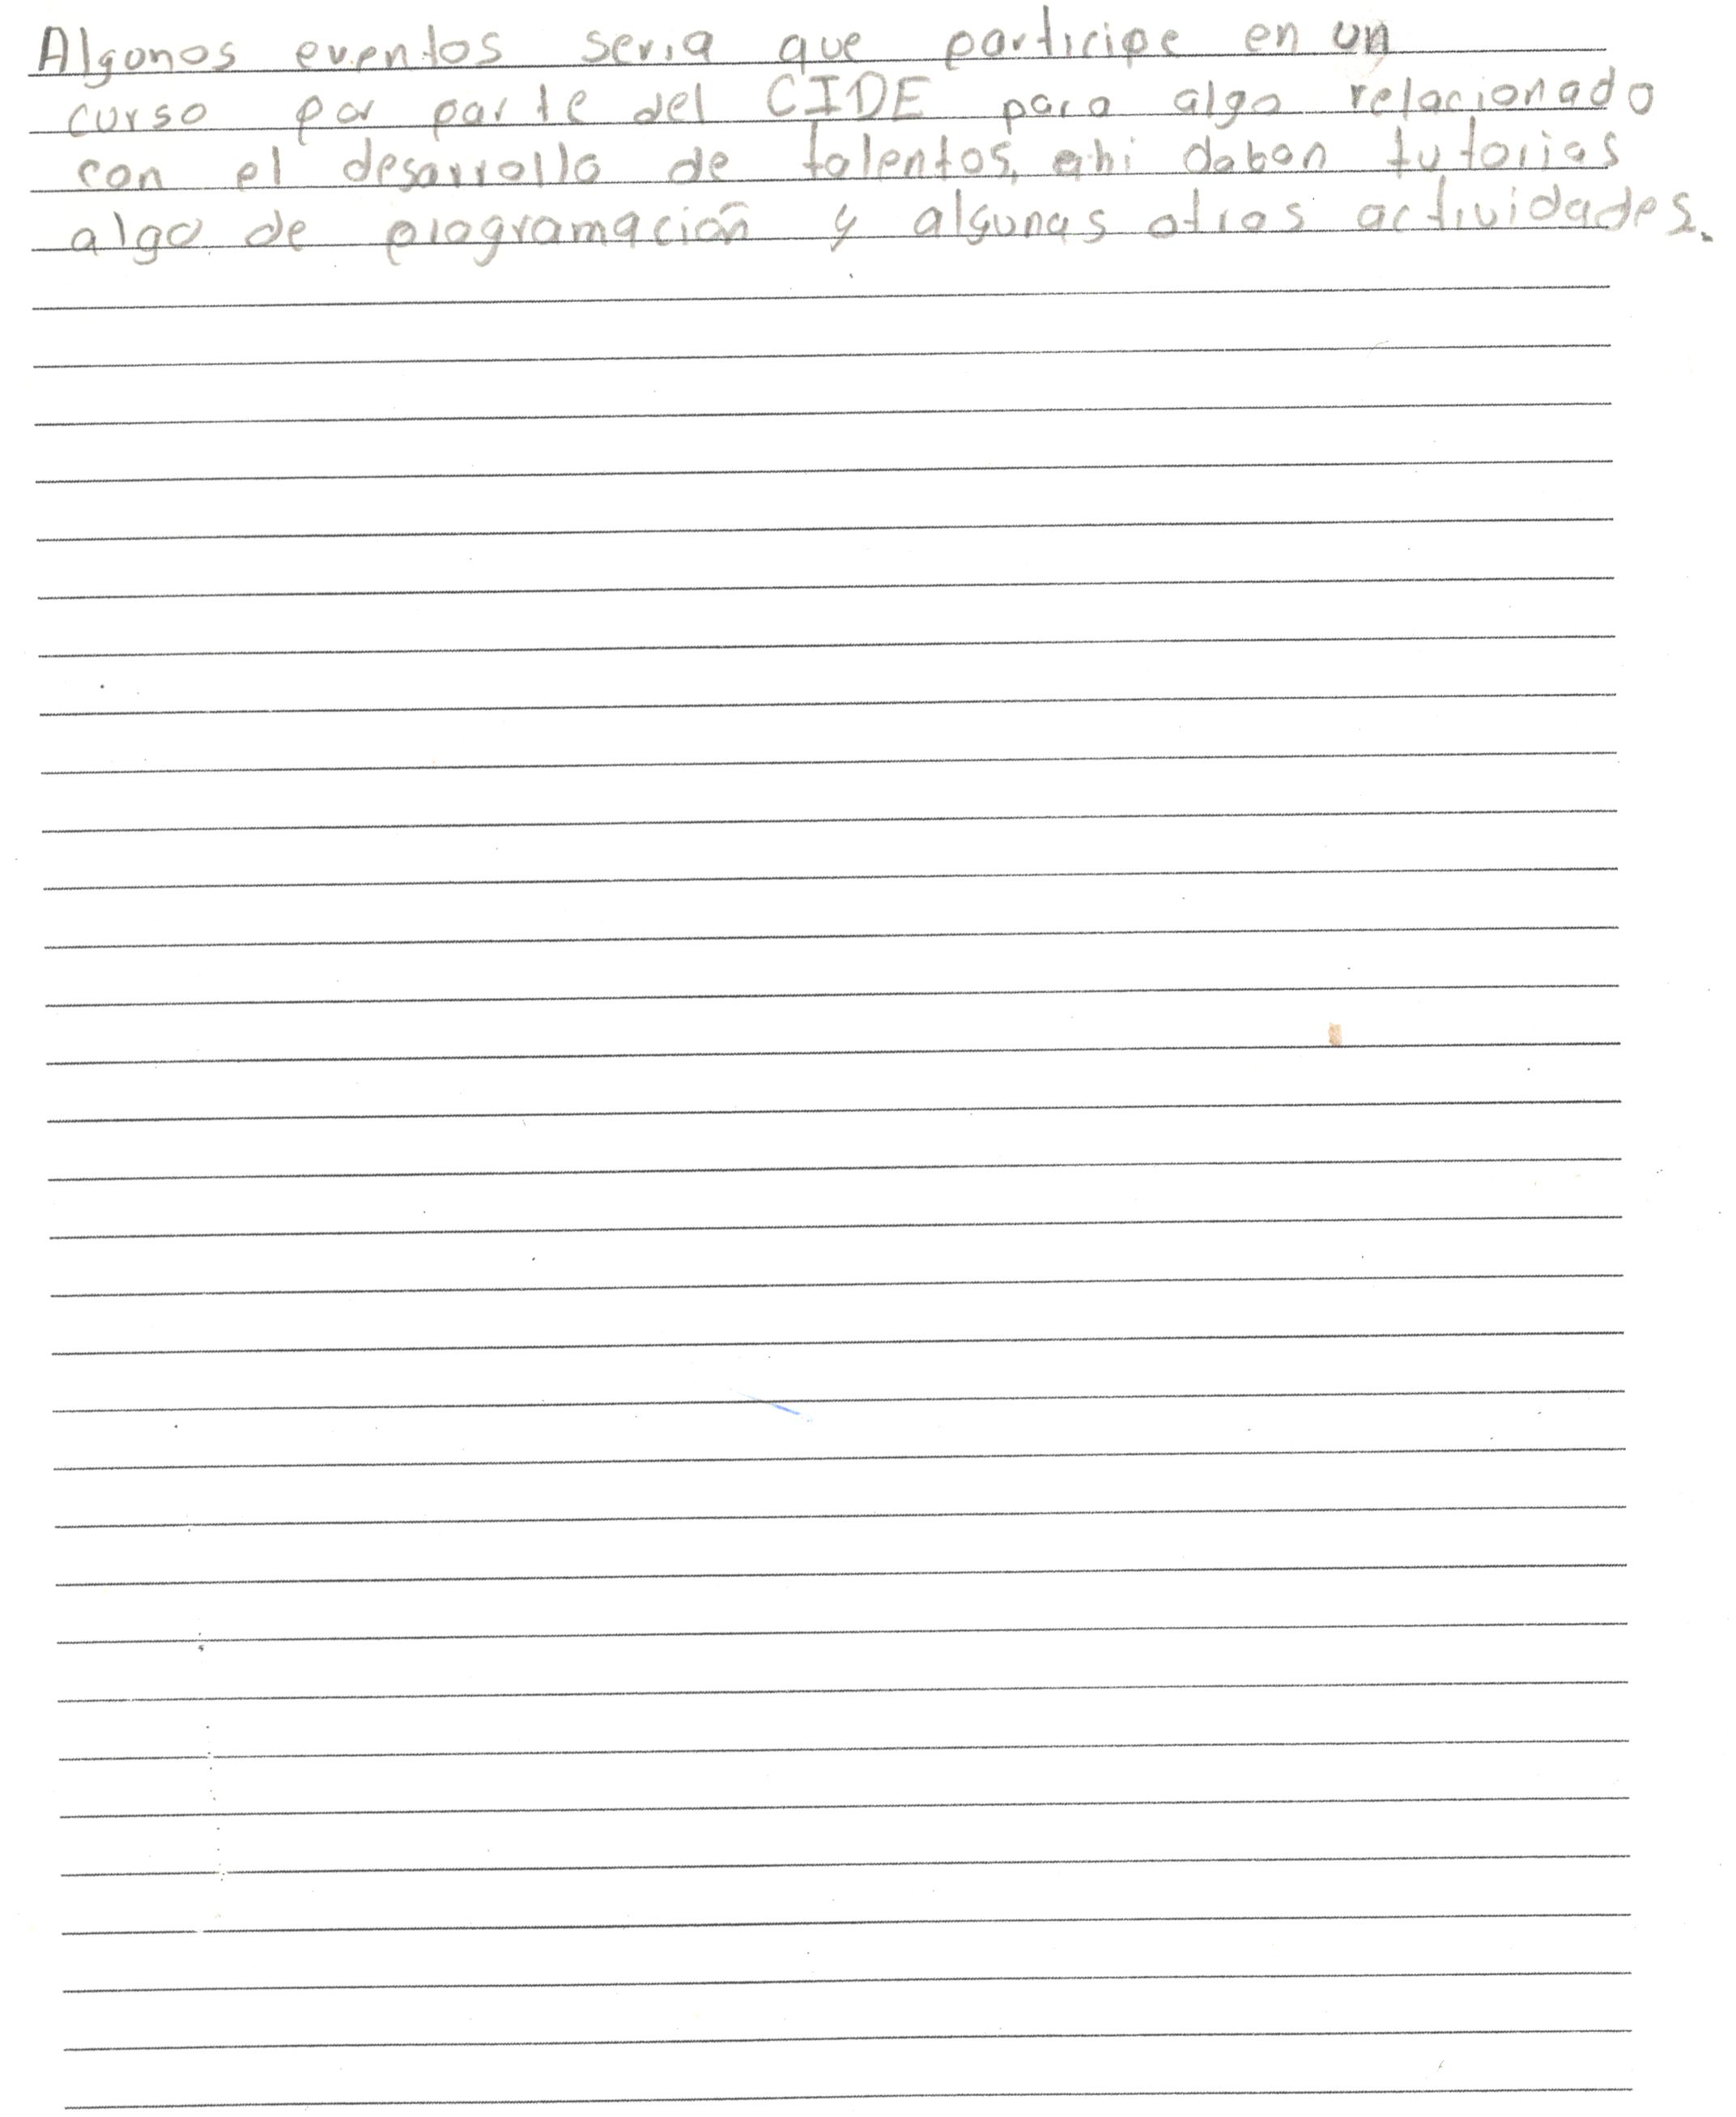 Algunos eventos seria que participe en un
curso por parte del CIDE para algo relacionado
con el desarrollo de talentos, ahi daban tutorias
algo de programación y algunas otras actividades.